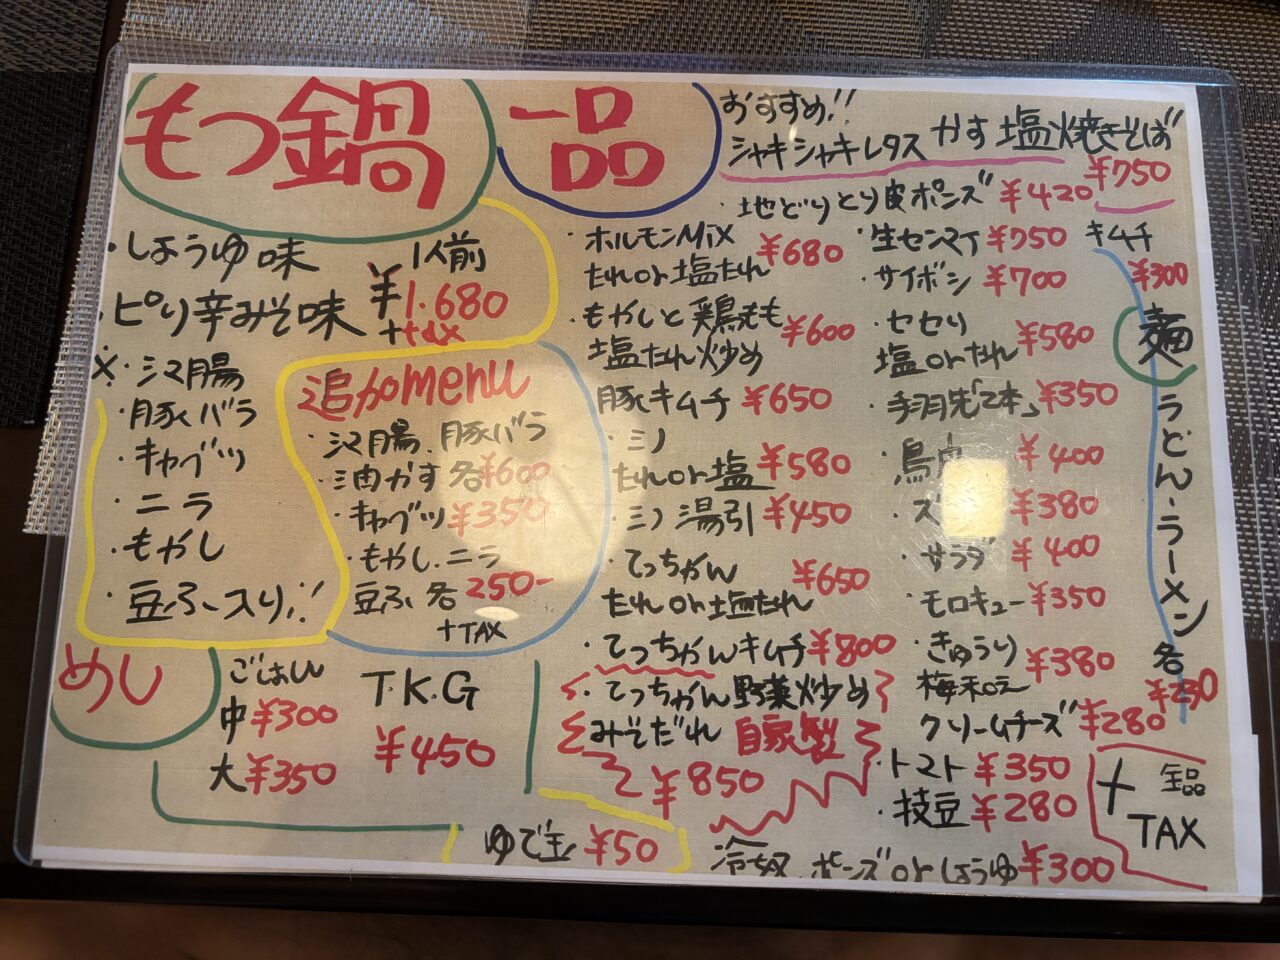 もつ鍋
・しょうゆ味
・ピリ辛みそ味
1人前
¥1.680
+tax
×・シマ腸
・豚バラ
・キャベツ
・ニラ
・もやし
・豆ふ入り!!
追加menu
・シマ腸、豚バラ
油かす各¥600
・キャベツ¥350
・もやし、ニラ
豆ふ 各250-
+TAX
めし
ごはん
中¥300
大¥350
T.K.G
¥450
ゆで玉¥50
一品
おすすめ!!
シャキシャキレタスかす塩焼きそば
¥750
・地どりとり皮ポンズ¥420
・ホルモンMiX
たれor塩たれ
¥680
・もやしと鶏もも
塩たれ炒め
¥600
豚キムチ¥650
・ミノ
たれor塩¥580
・ミノ湯引¥450
・てっちゃん
たれor塩たれ
¥650
・てっちゃんキムチ¥800
・てっちゃん野菜炒め
みそだれ自家製
¥850
・生センマイ¥750
・サイボシ¥700
・セセリ
塩orたれ
¥580
・手羽先「2本」¥350
・鳥皮¥400
・ズ¥380
・サラダ¥400
・モロキュー¥350
・きゅうり
梅和え
¥380
クリームチーズ¥280
・トマト¥350
・枝豆¥280
冷奴 ポンズorしょうゆ¥300
キムチ
¥300
麺
うどん・ラーメン各
¥230
+全品
TAX